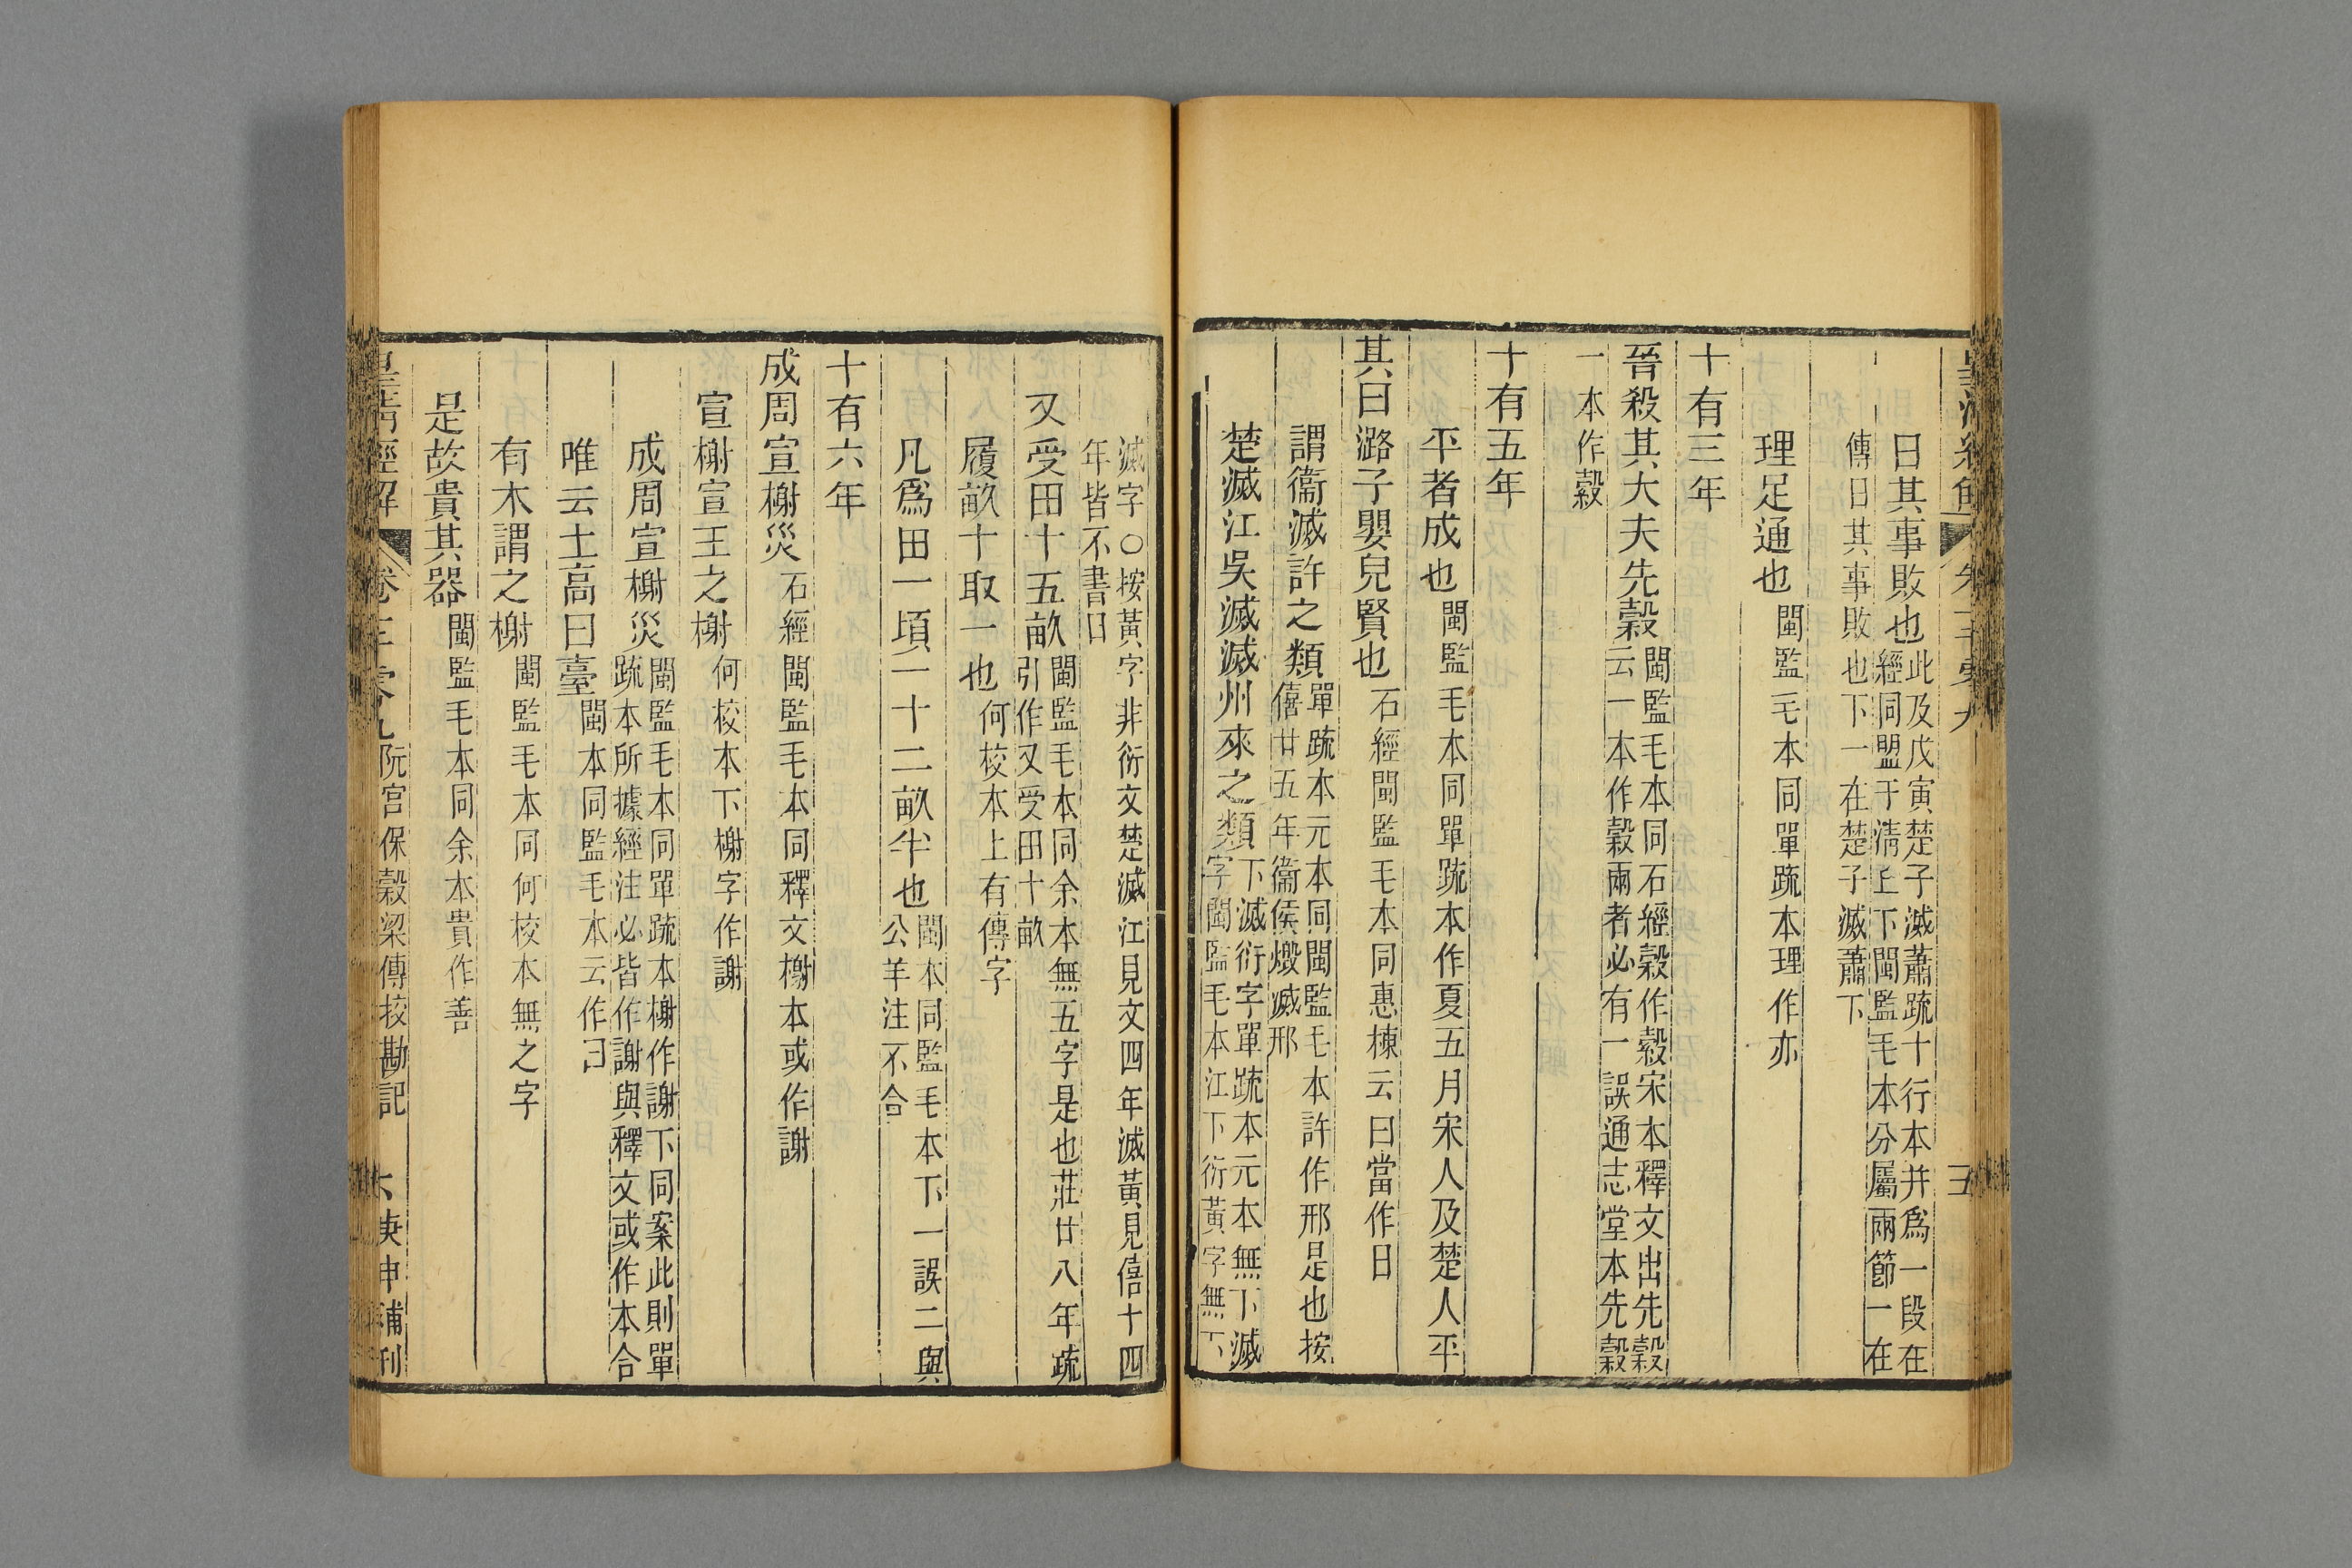 日其事敗也此及戊寅楚子滅蕭疏十行本并爲一段在
經同盟于淸丘下閩監毛本分屬兩節一在
傳日其事敗也下一在楚子滅蕭下
理足通也閩監毛本同單疏本理作亦
十有三年
晉殺其大夫先縠閩監毛本同石經縠作穀宋本釋文出先縠
云一本作穀兩者必有一誤通志堂本先穀
一本作縠
十有五年
平者成也閩監毛本同單疏本作夏五月宋人及楚人平
其曰潞子嬰兒賢也石經閩監毛本同惠棟云曰當作日
謂衞滅許之類單疏本元本同閩監毛本許作邢是也按
僖廿五年衞侯燬滅邢
楚滅江吳滅滅州來之類下滅衍字單疏本元本無下滅
字閩監毛本江下衍黃字無下
滅字〇按黃字非衍文楚滅江見文四年滅黃見僖十四
年皆不書日
又受田十五畝閩監毛本同余本無五字是也莊廿八年疏
引作又受田十畝
履畝十取一也何校本上有傳字
凡爲田一頃一十二畝半也閩本同監毛本下一誤二與
公羊注不合
十有六年
成周宣榭災石經閩監毛本同釋文榭本或作謝
宣榭宣王之榭何校本下榭字作謝
成周宣榭災閩監毛本同單疏本榭作謝下同案此則單
疏本所據經注必皆作謝與釋文或作本合
唯云士高曰臺閩本同監毛本云作曰
有木謂之榭閩監毛本同何校本無之字
是故貴其器閩監毛本同余本貴作善
皇淸經解 卷三零九 阮宮保穀梁傳校勘記 六 庚申補刊